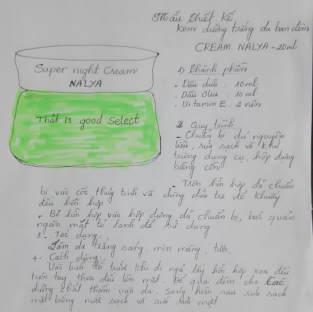 Mẫu thiết kế
Kem dưỡng trắng da ban đêm
CREAM NALYA - 20ml
Super night Cream
NALYA
That is good Select
1) Thành phần
- Dầu dừa : 10ml
- Dầu Oliu : 10ml
- Vitamin E : 2 viên
2 Quy trình
- Chuẩn bị đủ nguyên
liệu, rửa sạch và khử
trùng dụng cụ, hộp đựng
bằng cồn
- Trộn hỗn hợp đã chuẩn
bị vào cốc thủy tinh và dùng đũa tre để khuấy
đều hỗn hợp
- Bỏ hỗn hợp vào hộp đựng đã chuẩn bị, bảo quản
ngăn mát tủ lạnh để sử dụng
3- Tác dụng
Làm da trắng sáng, mịn màng,
4- Cách dùng
Vào ban đêm trước khi đi ngủ lấy hỗn hợp xoa đều
trên tay thoa đều lên mặt, để qua đêm cho các
dưỡng chất thấm vào da, sáng hôm sau rửa sạch
mặt bằng nước sạch và sữa rửa mặt